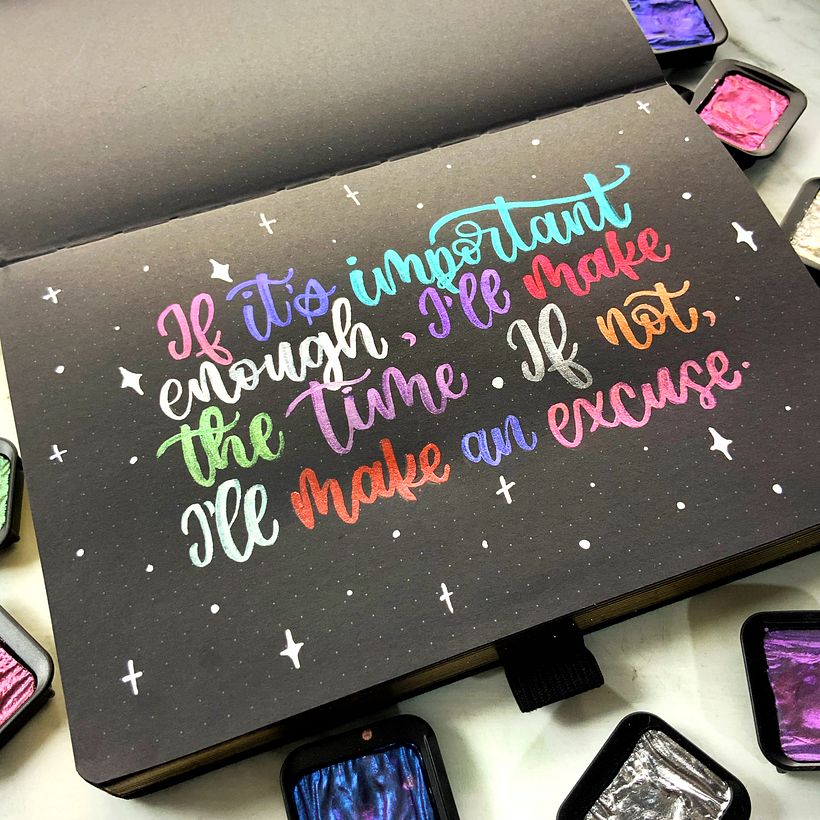 If it's important
enough, I'll make
the time. If not,
I'll make an excuse.